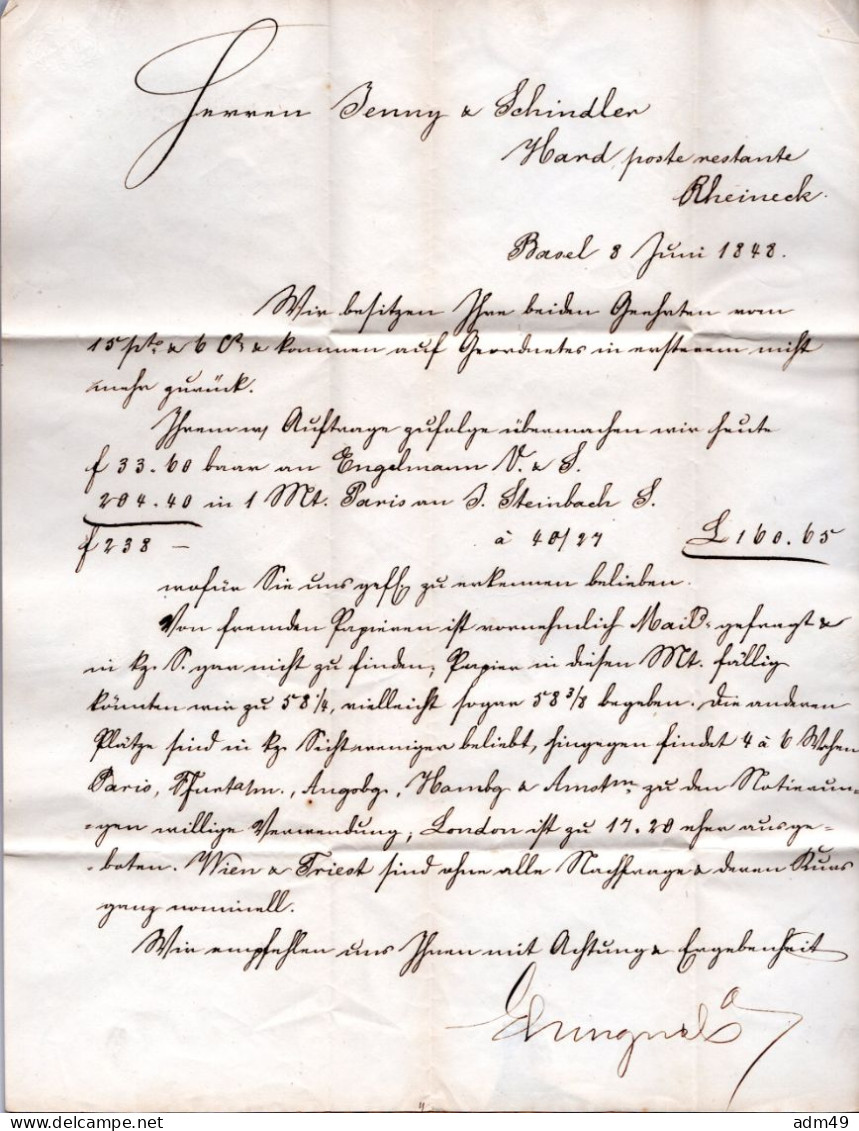 Herren Jenny & Schindler
Hard poste restante
Rheineck.
Basel 8 Juni 1848.
Wir besitzen Ihre beiden Geehrten vom
15 pto & 6 & kommen auf Geordnetes in ersterem nicht
mehr zurück.
Ihrem w/ Auftrage zufolge übermachen wir heute
f 33.60 baar an Engelmann V. & S.
204.40 in 1 Mt. Paris an J. Steinbach S.
f 238 — à 40/27 L 160.65
wofür Sie uns gefl. zu erkennen belieben.
Von fremden Papieren ist vornehmlich Maild. gefragt &
in kz. S. gar nicht zu finden; Papier in diesen Mt. fällig
könnten wir zu 58 1/4, vielleicht sogar 58 3/8 begeben. Die anderen
Plätze sind in kz. Sicht weniger beliebt, hingegen findet 4 à 6 Wochen
Paris, Augsbg., Hambg & Amstm. zu den Notierun-
-gen willige Verwendung; London ist zu 17.20 eher ausge-
-boten. Wien & Triest sind ohne alle Nachfrage & deren Kurs
ganz nominell.
Wir empfehlen uns Ihnen mit Achtung & Ergebenheit
adm49